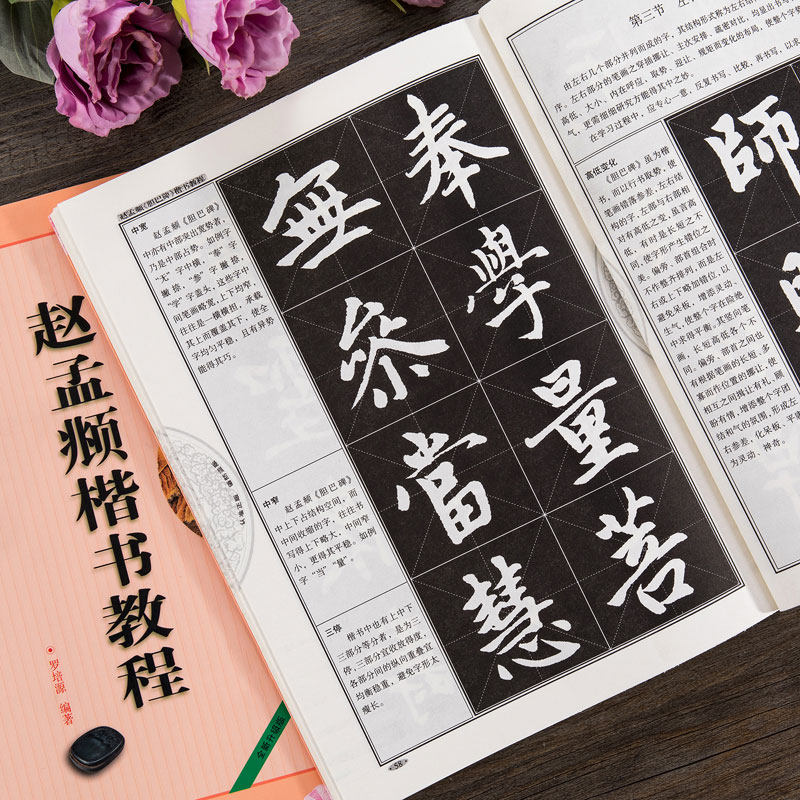 赵孟頫楷书教程
罗培源 编著
全新升级版
赵孟頫《胆巴碑》楷书教程
中宽
赵孟頫《胆巴碑》
中亦有中部突出宽势者，
乃是中部占势。如例字
“无”字中横，“奉”字
撇捺，“参”字撇捺，
“学”字盖头，这些字中
间笔画略宽，上下均窄，
往往是一横横担，承载
其上而覆盖其下，使全
字均匀平稳，且有异势
能得其巧。
中窄
赵孟頫《胆巴碑》
中上下占结构空间，而
中间收缩的字，往往书
写得上下略大，中间窄
小，更得其平稳。如例
字“当”“量”。
三停
楷书中也有上中下
三部分等分者，是为三
停，三部分宜收放得度，
各部分间的纵向重叠宜
均衡稳重，避免字形太
瘦长。
無 奉
參 學
當 量
慧 菩
58
第三节 左
由左右几个部分并列而成的字，其结构形式称为左右结
序。左右部分的笔画之穿插挪让、主次安排、疏密对比，均显出书写
高低、大小、内在呼应，取势、迎让、规矩形变化的布局，使整个字势
气，更需细细研究方能得其中之妙。
在学习过程中，应专心一意，反复书写、比较，再书写，以求
高低变化
《胆巴碑》虽为楷
书，而以行书取势，使
笔画错落参差，左右结
构的字，左部与右部相
对有高低之变，虽言高
低，有时是长短之不
同，使字形产生错位之
美。偏旁、部首组合时
不作整齐排列，而是左
右或上下略加错位，以
避免呆板，增添灵动、
生气，使整个字在险绝
中求得平衡。其竖向笔
画，长短高低各个不
同。偏旁、部首之间也
有根据笔画的长短、多
寡而作位置的挪让，使
相互之间揖让有礼、顾
盼有情，增添整个字团
结和气的氛围，形成左
右参差，化呆板、平
为灵动、神奇。
師